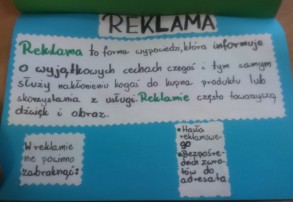 REKLAMA
Reklama to forma wypowiedzi, która informuje
o wyjątkowych cechach czegoś i tym samym
służy nakłonieniu kogoś do kupna produktu lub
skorzystania z usługi. Reklamie często towarzyszą
dźwięk i obraz.
W reklamie
nie powinno
zabraknąć:
• Hasła
reklamowe-
go
• Bezpośre-
dnich zwro-
tów do
adresata